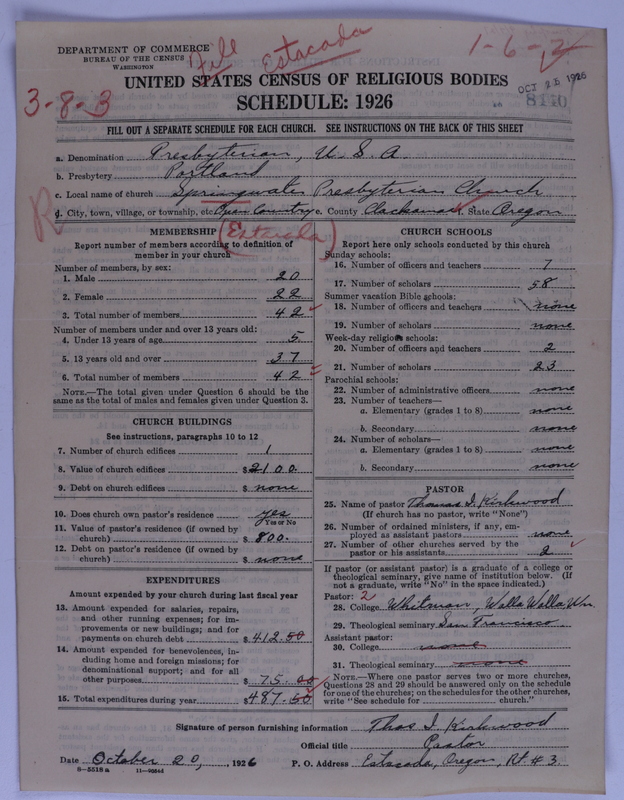 DEPARTMENT OF COMMERCE
BUREAU OF THE CENSUS
WASHINGTON
File Estacada
1-6-2
3-8-3
OCT 25 1926
8140
UNITED STATES CENSUS OF RELIGIOUS BODIES
SCHEDULE: 1926
FILL OUT A SEPARATE SCHEDULE FOR EACH CHURCH. SEE INSTRUCTIONS ON THE BACK OF THIS SHEET
a. Denomination Presbyterian, U. S. A.
b. Presbytery Portland
c. Local name of church Springwater Presbyterian Church
R
d. City, town, village, or township, etc. Open Country e. County Clackamas f. State Oregon
(Estacada)
MEMBERSHIP
Report number of members according to definition of
member in your church
Number of members, by sex:
1. Male 20
2. Female 22
3. Total number of members 42
Number of members under and over 13 years old:
4. Under 13 years of age 5
5. 13 years old and over 37
6. Total number of members 42
NOTE.—The total given under Question 6 should be the
same as the total of males and females given under Question 3.
CHURCH BUILDINGS
See instructions, paragraphs 10 to 12
7. Number of church edifices 1
8. Value of church edifices $2100.
9. Debt on church edifices $ none
10. Does church own pastor's residence? yes
Yes or No
11. Value of pastor's residence (if owned by
church) $ 800.
12. Debt on pastor's residence (if owned by
church) $ none
EXPENDITURES
Amount expended by your church during last fiscal year
13. Amount expended for salaries, repairs,
and other running expenses; for im-
provements or new buildings; and for
payments on church debt $ 412.50
14. Amount expended for benevolences, in-
cluding home and foreign missions; for
denominational support; and for all
other purposes $ 75.00
15. Total expenditures during year $487.50
CHURCH SCHOOLS
Report here only schools conducted by this church
Sunday schools:
16. Number of officers and teachers 7
17. Number of scholars 58
Summer vacation Bible schools:
18. Number of officers and teachers none
19. Number of scholars none
Week-day religious schools:
20. Number of officers and teachers 2
21. Number of scholars 23
Parochial schools:
22. Number of administrative officers none
23. Number of teachers—
a. Elementary (grades 1 to 8) none
b. Secondary none
24. Number of scholars—
a. Elementary (grades 1 to 8) none
b. Secondary none
PASTOR
25. Name of pastor Thomas J. Kirkwood
(If church has no pastor, write "None")
26. Number of ordained ministers, if any, em-
ployed as assistant pastors none
27. Number of other churches served by the
pastor or his assistants 2
If pastor (or assistant pastor) is a graduate of a college or
theological seminary, give name of institution below. (If
not a graduate, write "No" in the space indicated.)
Pastor: 2
28. College Whitman, Walla Walla, Wn.
29. Theological seminary San Francisco
Assistant pastor:
30. College none
31. Theological seminary none
NOTE.—Where one pastor serves two or more churches,
Questions 28 and 29 should be answered only on the schedule
for one of the churches; on the schedules for the other churches,
write "See schedule for church."
Signature of person furnishing information Thos J. Kirkwood
Official title Pastor
Date October 20, 1926 P. O. Address Estacada, Oregon, Rt #3
8—5518 a